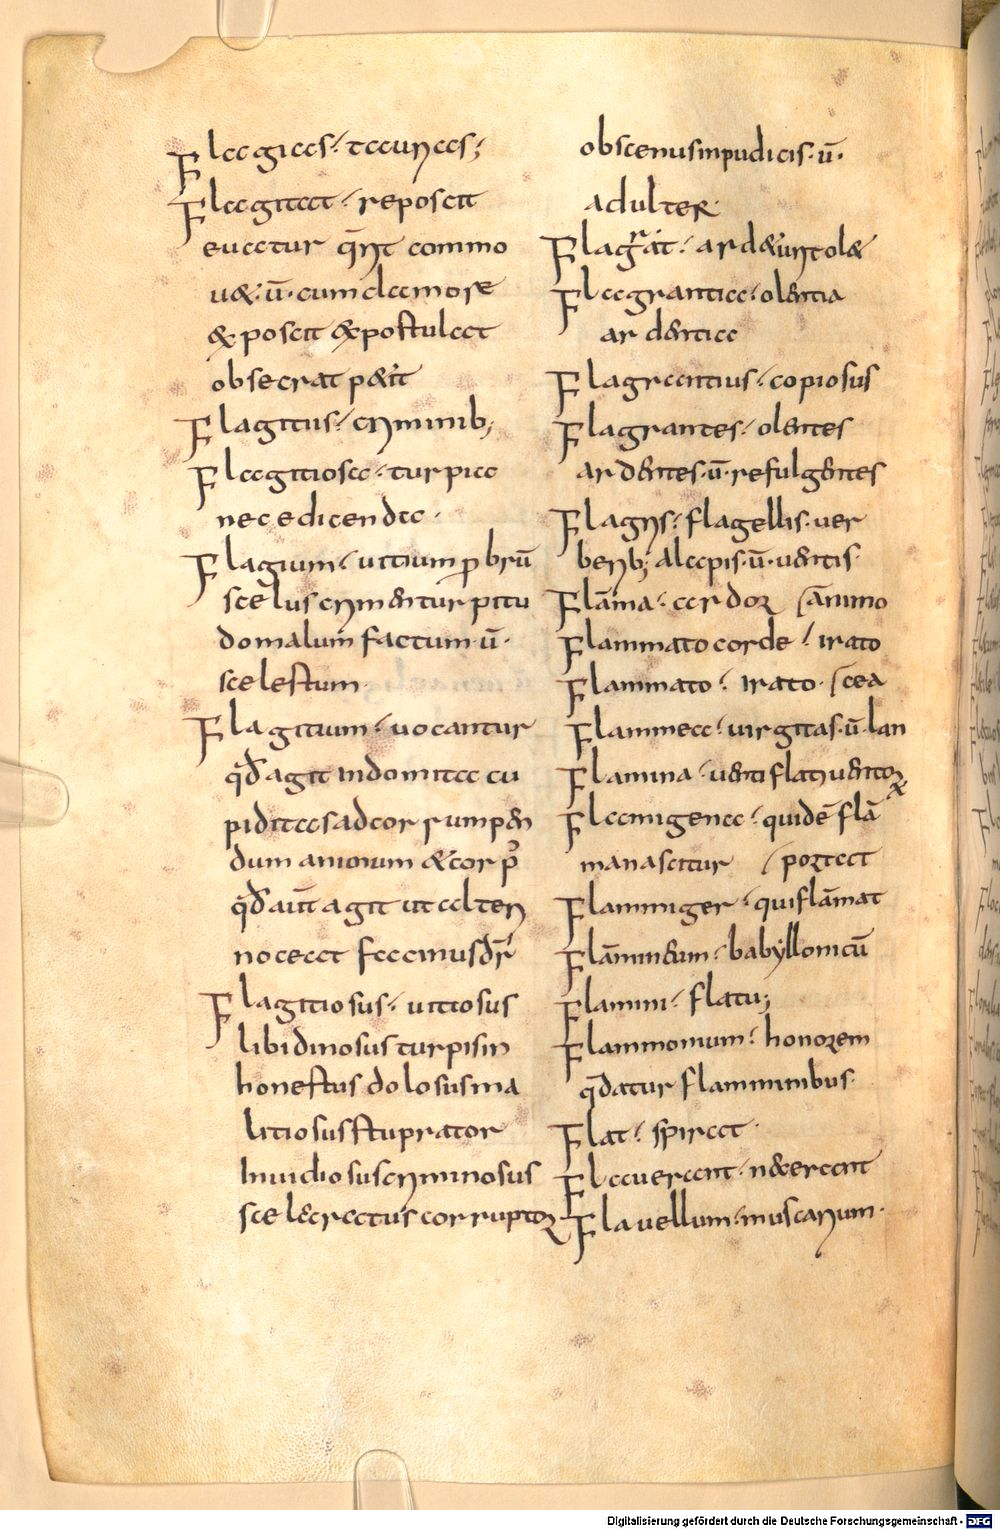 Flagias· taunas;
Flagitat· reposcit
eucatur q̄rit commo
u&·ū·cum clamore
& poscit & postulat
obsecrat p&it
Flagitiis· criminib;
Flagitiosa· turpia
nec edicenda·
Flagium· uitium p brū
scelus crimentur pitu
do malum factum·ū·
scelestum·
Flagitium· uocantur
qđ agit indomita cu
piditas ad cor rumpen
dum animum & corp̄
qđ aut agit ut alteri
noceat facinus dr̄
Flagitiosus· uitiosus
libidinosus turpis in
honestus dolosus ma
litiosus stuprator
Inuidiosus criminosus
sceleratus corruptor
obscenus inpudicis·ū·
adulter·
Flagrat· ard& uritol&
Flagrantia· olentia
ardentia
Flagrantius· copiosus
Flagrantes· olentes
ardentes·ū·refulgentes
Flagris· flagellis·uer
berib; alapis·ū·uentis·
Flāma· cardor animo
Flammato corde· irato
Flammato· irato· scea
Flammea· uirgitas·ū·lan
Flamina· uenti flatiuentor
Flamigena· qui dē flā
manascitur portat
Flammiger· qui flāmat
Flāmineum· babyllonicū
Flamini· flatu;
Flammonium· honorem
qđatur flaminibus·
Flat· spirat·
Flauerant· n&erant
Flauellum· muscarium·
Digitalisierung gefördert durch die Deutsche Forschungsgemeinschaft - DFG